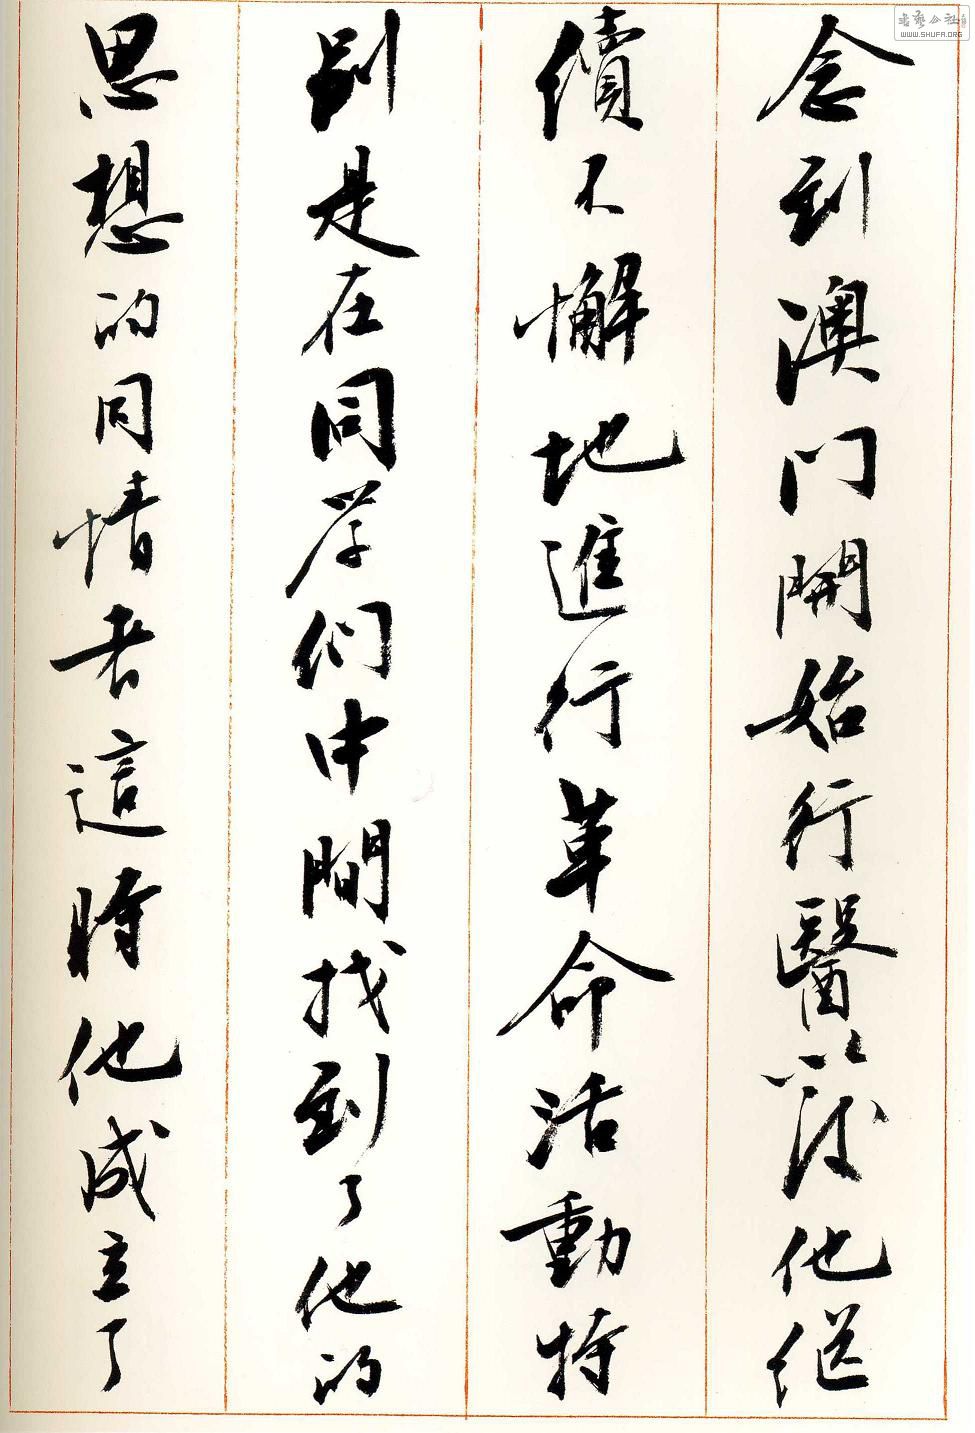 念到澳门開始行醫以後他继
續不懈地進行革命活動特
别是在同学们中間找到了他的
思想的同情者這時他成立了
書藝公社
WWW.SHUFA.ORG